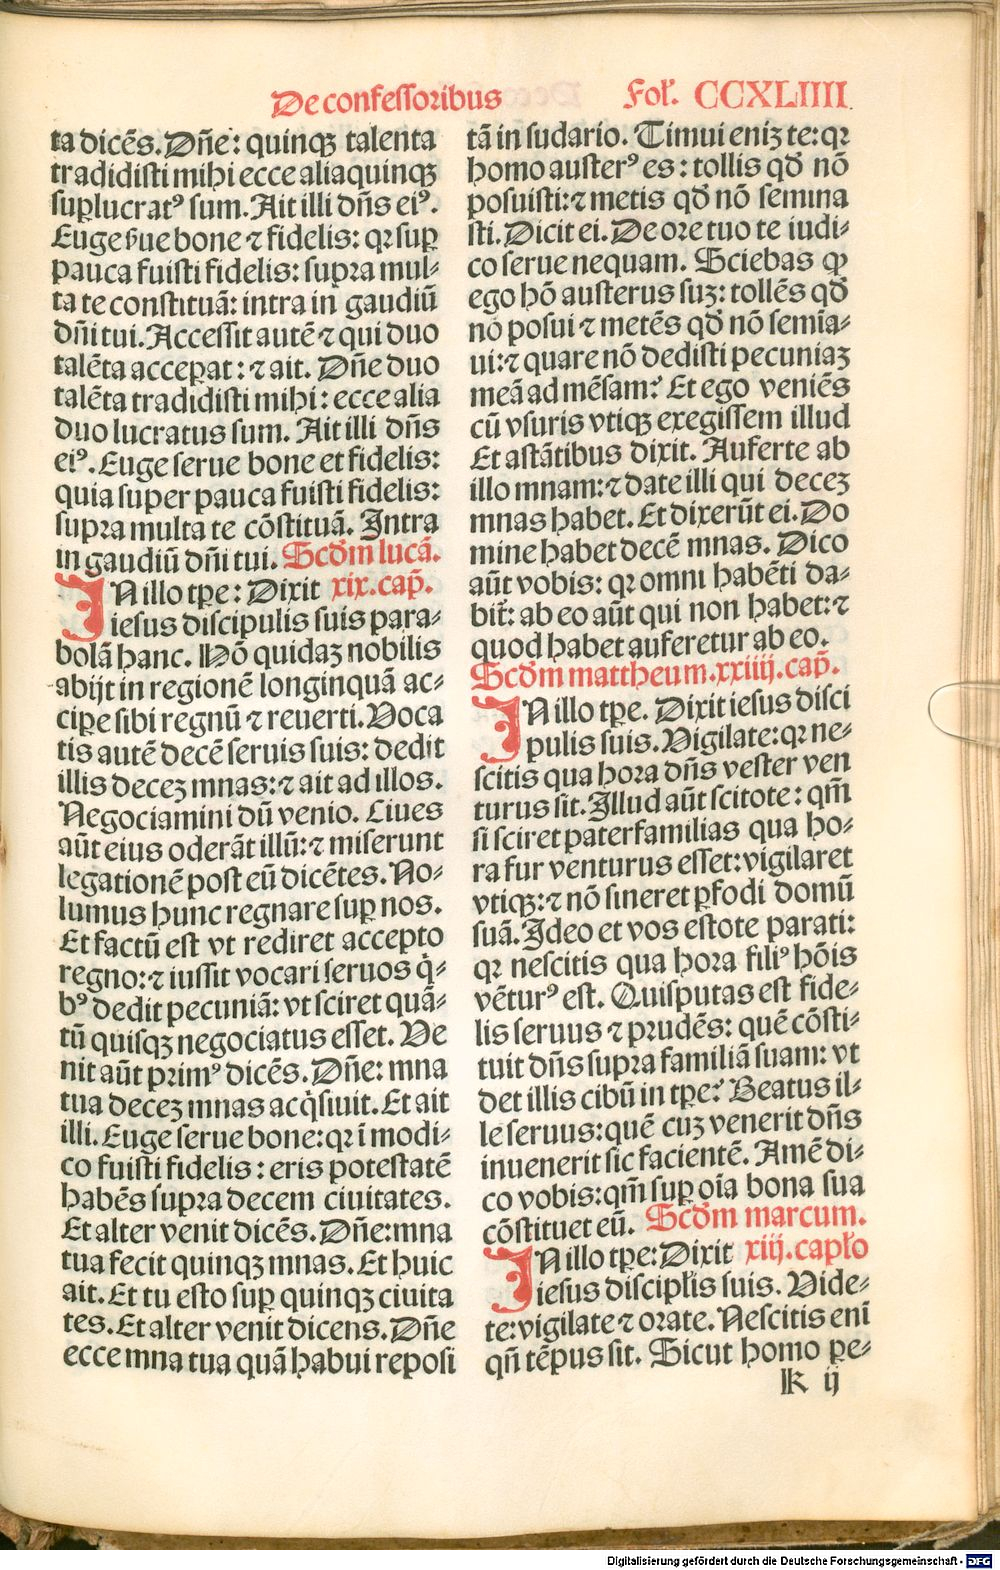 De confessoribus Foł. CCXLIIII
ta dicēs. Dñe: quinqꝫ talenta
tradidisti mihi ecce alia quinqꝫ
suꝑlucratꝰ sum. Ait illi dñs eiꝰ.
Euge ẜue bone ⁊ fidelis: qꝛ suꝑ
pauca fuisti fidelis: supra mul⸗
ta te constituã: intra in gaudiũ
dñi tui. Accessit autē ⁊ qui duo
talēta acceꝑat: ⁊ ait. Dñe duo
talēta tradidisti mihi: ecce alia
duo lucratus sum. Ait illi dñs
eiꝰ. Euge serue bone et fidelis:
quia super pauca fuisti fidelis:
supra multa te cõstituã. Intra
in gaudiũ dñi tui. Scd̃m lucã.
IN illo tꝑe: Dixit xix. cap̃.
iesus discipulis suis para⸗
bolã hanc. Hõ quidaꝫ nobilis
abijt in regionē longinquã ac⸗
ciꝑe sibi regnũ ⁊ reuerti. Voca
tis autē decē seruis suis: dedit
illis deceꝫ mnas: ⁊ ait ad illos.
Negociamini dũ venio. Ciues
aũt eius oderãt illũ: ⁊ miserunt
legationē post eũ dicētes. No⸗
lumus hunc regnare suꝑ nos.
Et factũ est vt rediret accepto
regno: ⁊ iussit vocari seruos q̇⸗
bꝰ dedit pecuniã: vt sciret quã⸗
tũ quisqꝫ negociatus esset. Ve
nit aũt primꝰ dicēs. Dñe: mna
tua deceꝫ mnas acq̇siuit. Et ait
illi. Euge serue bone: qꝛ ĩ modi⸗
co fuisti fidelis: eris potestatē
habēs supra decem ciuitates.
Et alter venit dicēs. Dñe: mna
tua fecit quinqꝫ mnas. Et huic
ait. Et tu esto suꝑ quinqꝫ ciuita
tes. Et alter venit dicens. Dñe
ecce mna tua quã habui reposi
tã in sudario. Timui eniꝫ te: qꝛ
homo austerꝰ es: tollis qd̃ nõ
posuisti: ⁊ metis qd̃ nõ semina
sti. Dicit ei. De ore tuo te iudi⸗
co serue nequam. Sciebas ꝙ
ego hõ austerus suꝫ: tollēs qd̃
nõ posui ⁊ metēs qd̃ nõ semĩa⸗
ui: ⁊ quare nõ dedisti pecuniaꝫ
meã ad mēsam? Et ego veniēs
cũ vsuris vtiqꝫ exegissem illud
Et astãtibus dixit. Auferte ab
illo mnam: ⁊ date illi qui deceꝫ
mnas habet. Et dixerũt ei. Do
mine habet decē mnas. Dico
aũt vobis: qꝛ omni habēti da⸗
bit̃: ab eo aũt qui non habet: ⁊
quod habet auferetur ab eo.
Scd̃m mattheum. xxiiij. cap̃.
IN illo tꝑe. Dixit iesus disci
pulis suis. Vigilate: qꝛ ne⸗
scitis qua hora dñs vester ven
turus sit. Illud aũt scitote: qm̃
si sciret paterfamilias qua ho⸗
ra fur venturus esset: vigilaret
vtiqꝫ: ⁊ nõ sineret ꝑfodi domũ
suã. Ideo et vos estote parati:
qꝛ nescitis qua hora filiꝰ hõis
vēturꝰ est. Quis putas est fide⸗
lis seruus ⁊ prudēs: quē cõsti⸗
tuit dñs supra familiã suam: vt
det illis cibũ in tꝑe? Beatus il⸗
le seruus: quē cuꝫ venerit dñs
inuenerit sic facientē. Amē di⸗
co vobis: qm̃ suꝑ oĩa bona sua
cõstituet eũ. Scd̃m marcum.
IN illo tꝑe: Dixit xiij. capło
iesus discipłis suis. Vide⸗
te: vigilate ⁊ orate. Nescitis enĩ
qñ tēpus sit. Sicut homo pe⸗
k ij
Digitalisierung gefördert durch die Deutsche Forschungsgemeinschaft - DFG